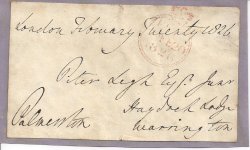 London February Twenty 1826
Peter Legh Esqr Junr
Haydock Lodge
Warrington
Palmerston